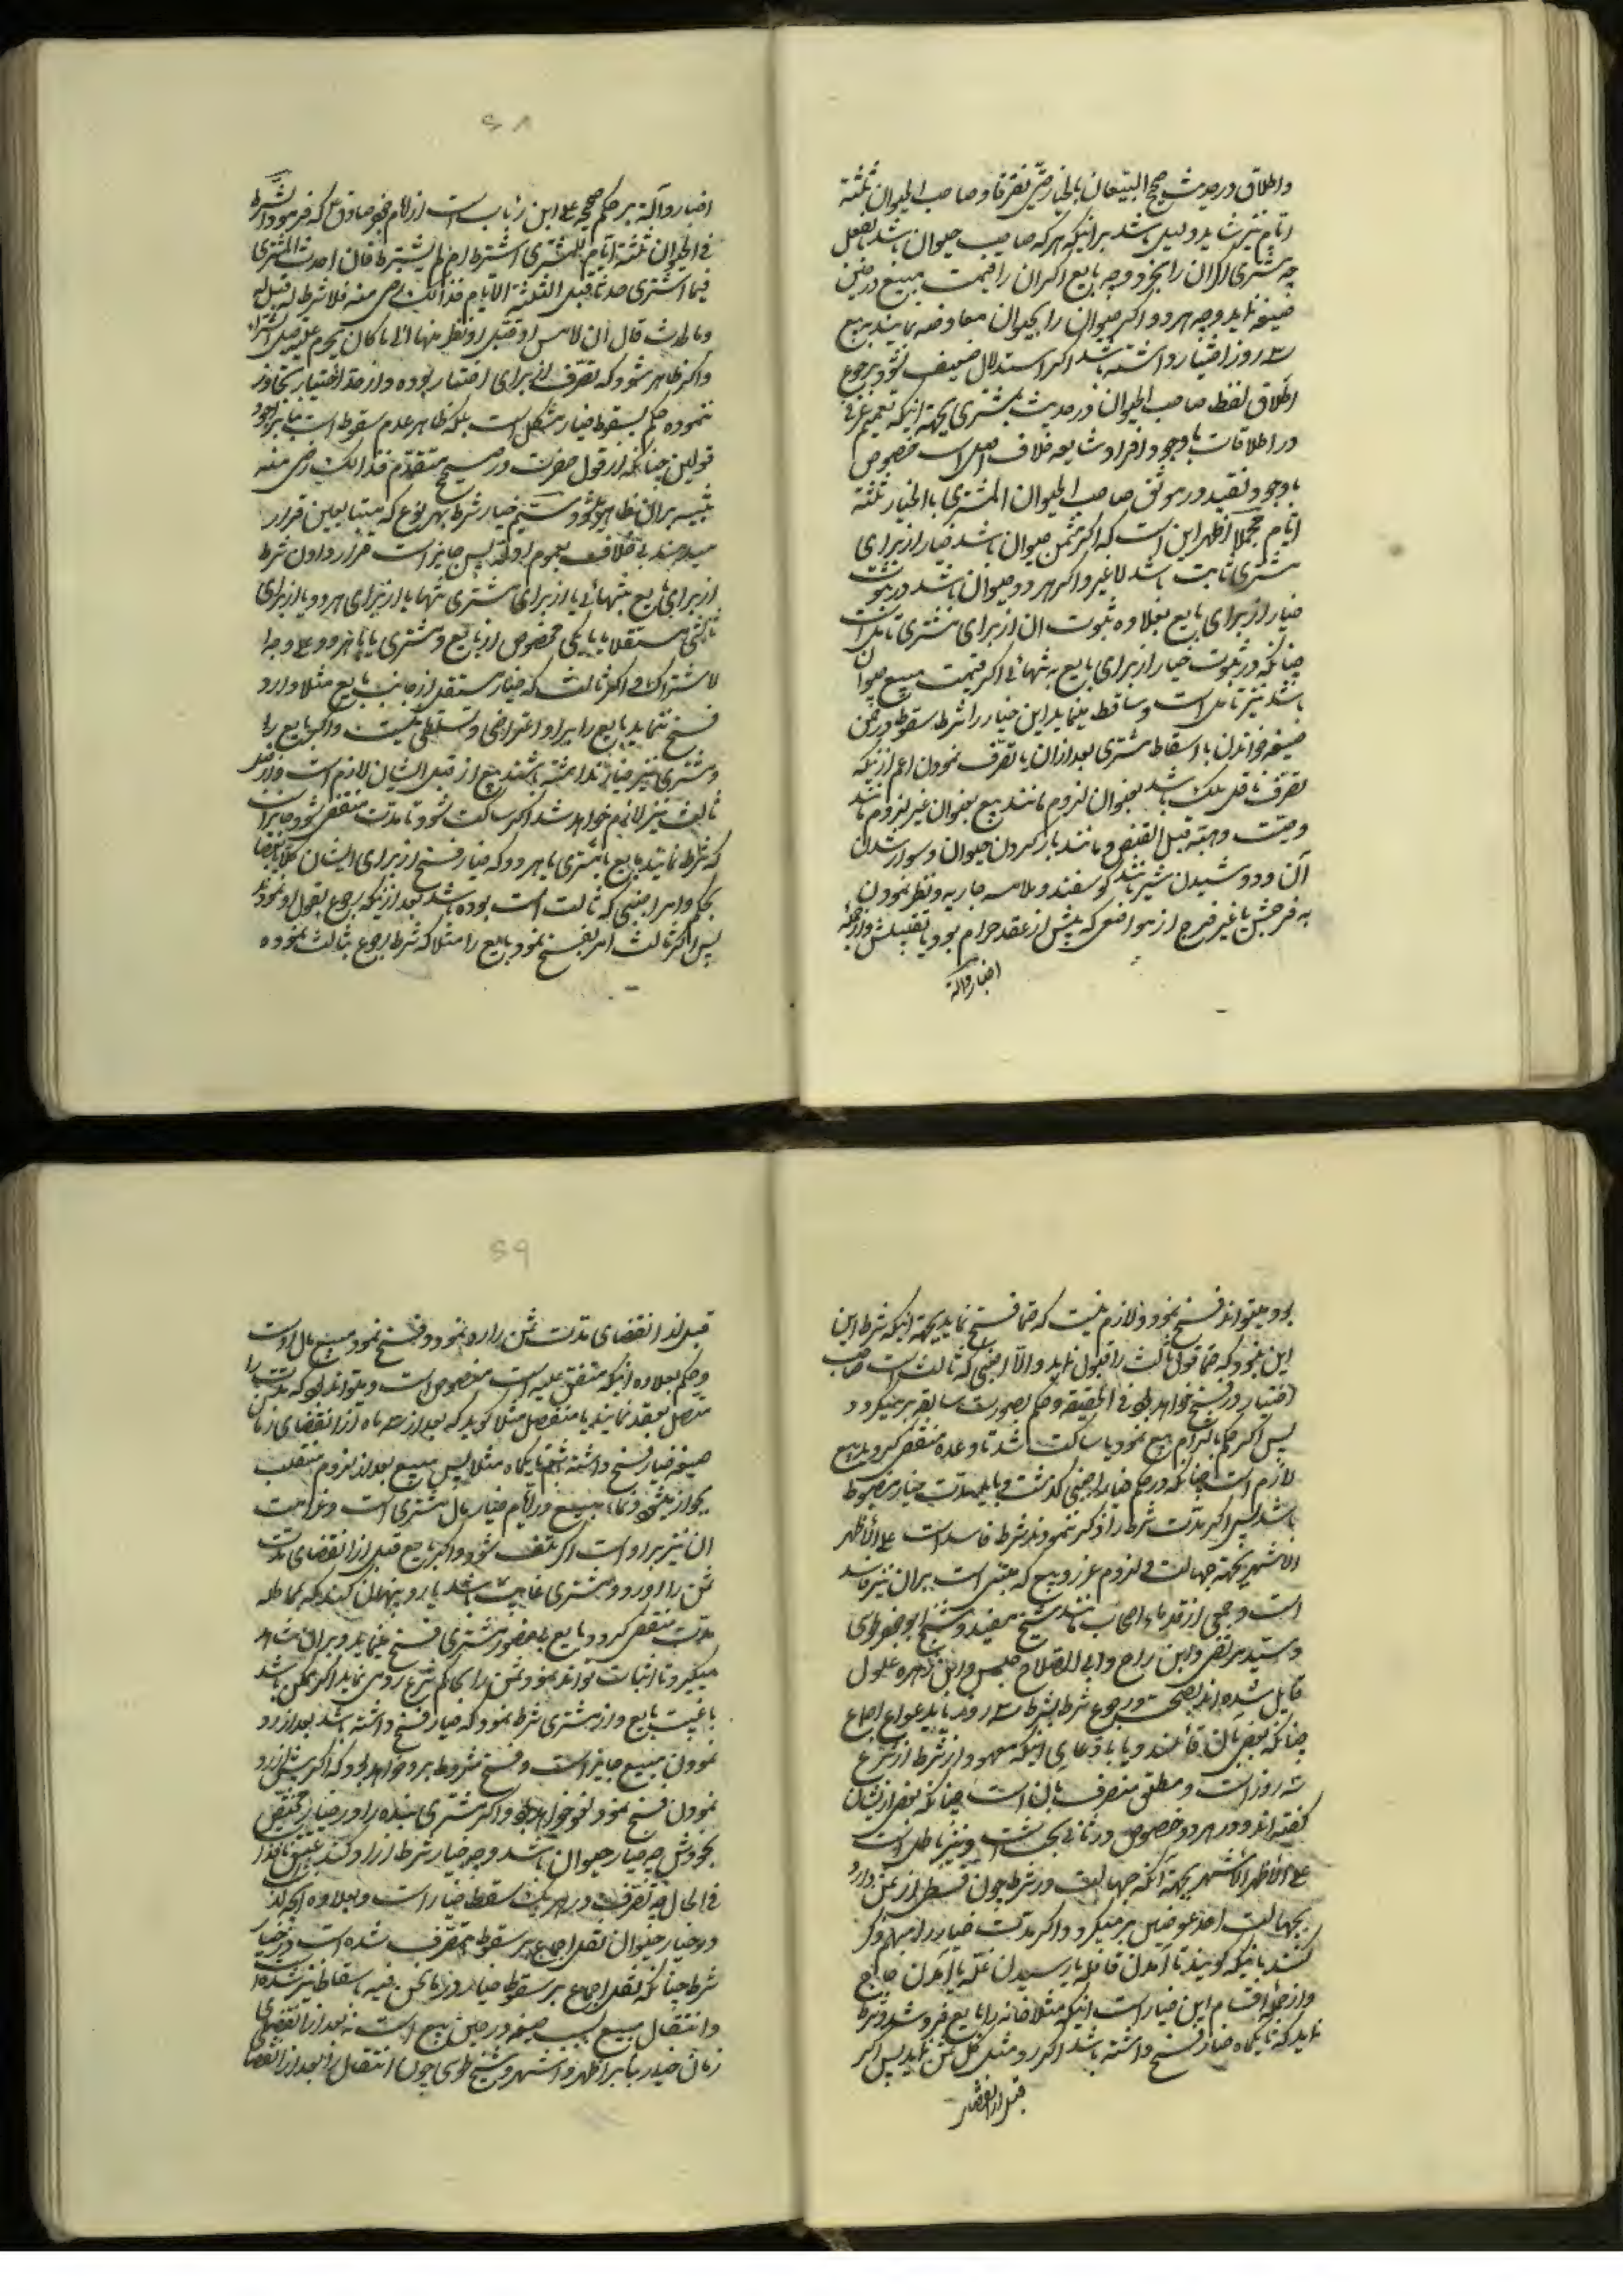 واطلاق در حدیث صحیح البیعان بالخیار حتی تفرقا و صاحب الحیوان ثلثة
ایام نیز شاید دلیل باشد بر اینکه هر که صاحب حیوان باشد بالفعل
چه مشتری اگر آن را بخرد و چه بایع اگر آن را قیمت مبیع در حین
صیغه نماید و چه هر دو اگر حیوان را بحیوان معاوضه نمایند بربیع
سه روز اختیار داشته باشد اگر استدلال ضعیف نشود برجوع
اطلاق لفظ صاحب الحیوان در حدیث بمشتری بجهة اینکه تعمیم عرفی
در اطلاقات با وجود افراد شایعه خلاف اصل است خصوص
با وجود تقیید در موثق صاحب الحیوان المشتری بالخیار ثلثة
ایام مجملا اظهر این است که اگر ثمن حیوان باشد خیار از برای
مشتری ثابت باشد لا غیر و اگر هر دو حیوان باشد در ثبوت
خیار از برای بایع بعلاوه ثبوت آن از برای مشتری تامل است
چنانکه در ثبوت خیار از برای بایع به تنهائی اگر قیمت مبیع حیوان
باشد نیز تامل است و ساقط مینماید این خیار را شرط سقوط در ضمن
صیغه خواندن یا اسقاط مشتری بعد از آن یا تصرف نمودن اعم از اینکه
تصرف ناقل ملک باشد بعنوان لزوم مانند بیع بعنوان غیر لزوم مانند
وصیت و هبه قبل القبض و مانند بار کردن حیوان و سوار شدن
آن و دوشیدن شیر مانند گوسفند و ملامسه جاریه و نظر نمودن
به فرجش یا غیر فرج از مواضعی که پیش از عقد حرام بود یا تقبیلش و از جمله
اخبار دالة
۶۸
اخبار دالة بر حکم صحیحه علی ابن رئاب است از امام جعفر صادق ع که فرمود الشرط
فی الحیوان ثلثة ایام للمشتری اشترط ام لم یشترط فان احدث المشتری
فیما اشتری حدثا قبل الثلثة الایام فذالک رضی منه فلا شرط له قیل له
وما الحدث قال ان لامس او قبل او نظر منها الی ما کان یحرم علیه قبل الشراء
و اگر ظاهر شود که تصرف از برای اختیار بوده و از حد اختیار تجاوز
ننموده حکم بسقوط خیار مشکل است بلکه ظاهر عدم سقوط است بنابر اجود
قولین چنانکه از قول حضرت در صحیح متقدم فذالک رضی منه
تنبیه بر آن ظاهر میشود سیم خیار شرط بهر نوع که متبایعین قرار
میدهند بی خلاف بعموم ادله پس جایز است قرار دادن شرط
از برای بایع بتنهائی یا از برای مشتری تنها یا از برای هر دو یا از برای
ثالثی مستقلا یا با یکی مخصوص از بایع و مشتری یا با هر دو علی وجه
لاشتراک و اگر ثالث که خیار مستقل از جانب بایع مثلا دارد
فسخ ننماید بایع را ایراد و اعتراضی و تسلطی نیست و اگر بایع را
و مشتری نیز خیار نداشته باشند بیع از قبل ایشان لازم است و از قبل
ثالث نیز لازم خواهد شد اگر ساکت شود تا مدت منقضی شود و جایز است
که شرط نمایند بایع یا مشتری یا هر دو که خیار فسخ از برای ایشان
بحکم و امر اجنبی که ثالث است بوده باشد بعد از اینکه رجوع بقول او نمودند
پس اگر ثالث امر بفسخ نمود بایع را مثلا که شرط رجوع بثالث نموده
بود میتواند فسخ نمود و لازم نیست که حتما فسخ نماید بجهة اینکه شرط این
این نبود که حتما قول ثالث را قبول نماید و الا اجنبی که ثالث است صاحب
اختیار در فسخ خواهد بود فی الحقیقه و حکم بصورت سابقه برمیگردد
پس اگر حکم بالتزام بیع نمود یا ساکت شد تا وعده منقضی گردید بیع
لازم است چنانکه در حکم خیار اجنبی گذشت و باید مدت خیار مضبوط
باشد پس اگر مدت شرط را ذکر ننمودند شرط فاسد است علی الاظهر
الاشهر بجهة جهالت و لزوم غرر و بیع که مبتنی است بر آن نیز فاسد
است و جمعی از قدماء اصحاب مانند شیخ مفید و شیخ ابو جعفر طوسی
و سید مرتضی و ابن براج و ابی الصلاح حلبی و ابن زهره علوی
قایل شده اند بصحت و رجوع شرط بشرط سه روز بنابر دعوای اجماع
چنانکه بعضی بآن قائلند و یا بادعای اینکه معهود از شرط از شرع
سه روز است و مطلق منصرف بآن است چنانکه بعضی از ایشان
گفته اند و در هر دو خصوص در ثانی بحث است و نیز باطل است
علی الاظهر الاشهر بجهة آنکه جهالت در شرط چون قسطی از ثمن دارد
بجهالت احد عوضین برمیگردد و اگر مدت خیار را مبهم ذکر
کنند باینکه گویند تا آمدن قافله یا رسیدن غله یا آمدن حاج
و از جمله اقسام این خیار است اینکه مثلا خانه را بایع بفروشد و شرط
نماید که تا یکماه خیار فسخ داشته باشد اگر رد مثل کل ثمن نماید پس اگر
قبل از انقضای
۶۹
قبل از انقضای مدت ثمن را رد نمود و فسخ نمود مبیع مال اوست
و حکم بعلاوه اینکه متفق علیه است منصوص است و میتواند بود که مدت را
متصل بعقد نمایند یا منفصل مثلا گوید که بعد از سه ماه از انقضای زمان
صیغه خیار فسخ داشته باشم تا یکماه مثلا پس مبیع بعد از لزوم منقلب
بجواز میشود و نماء مبیع در ایام خیار مال مشتری است و غرامت
آن نیز بر او است اگر تلف شود و اگر بایع قبل از انقضای مدت
ثمن را آورد و مشتری غایب باشد یا رو پنهان کند که بمماطله
مدت منقضی گردد بایع بی حضور مشتری فسخ مینماید و بر آن شاهد
میگیرد تا اثبات تواند نمود و ثمن را بحاکم شرع ردمی نماید اگر ممکن باشد
با غیبت بایع و از مشتری شرط نمود که خیار فسخ داشته باشد بعد از رد
نمودن مبیع جایز است و فسخ مشروط برد خواهد بود که اگر پیش از رد
نمودن فسخ نمود لغو خواهد بود و اگر مشتری بنده را در خیار مختص
بخودش چه خیار حیوان باشد و چه خیار شرط آزاد کند عتق نافذ است
فی الحال چه تصرف در هر یک مسقط خیار است و بعلاوه اینکه
در خیار حیوان نقل اجماع بر سقوط بتصرف شده است و در خیار
شرط چنانکه نقل اجماع بر سقوط خیار در ما نحن فیه باسقاط نیز شده است
و انتقال مبیع بسبب صیغه در حین بیع است نه بعد از انقضای
زمان خیار بنابر اظهر و اشهر و شیخ طوسی چون انتقال را بعد از انقضای